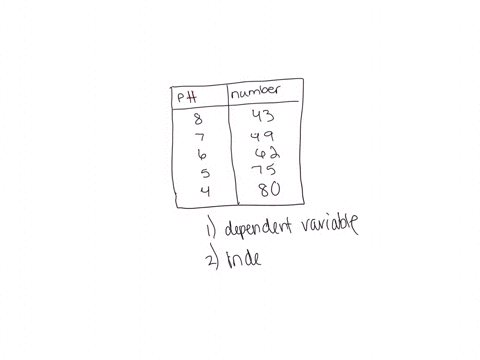 pH number
8 43
7 49
6 62
5 75
4 80
1) dependent variable
2) inde